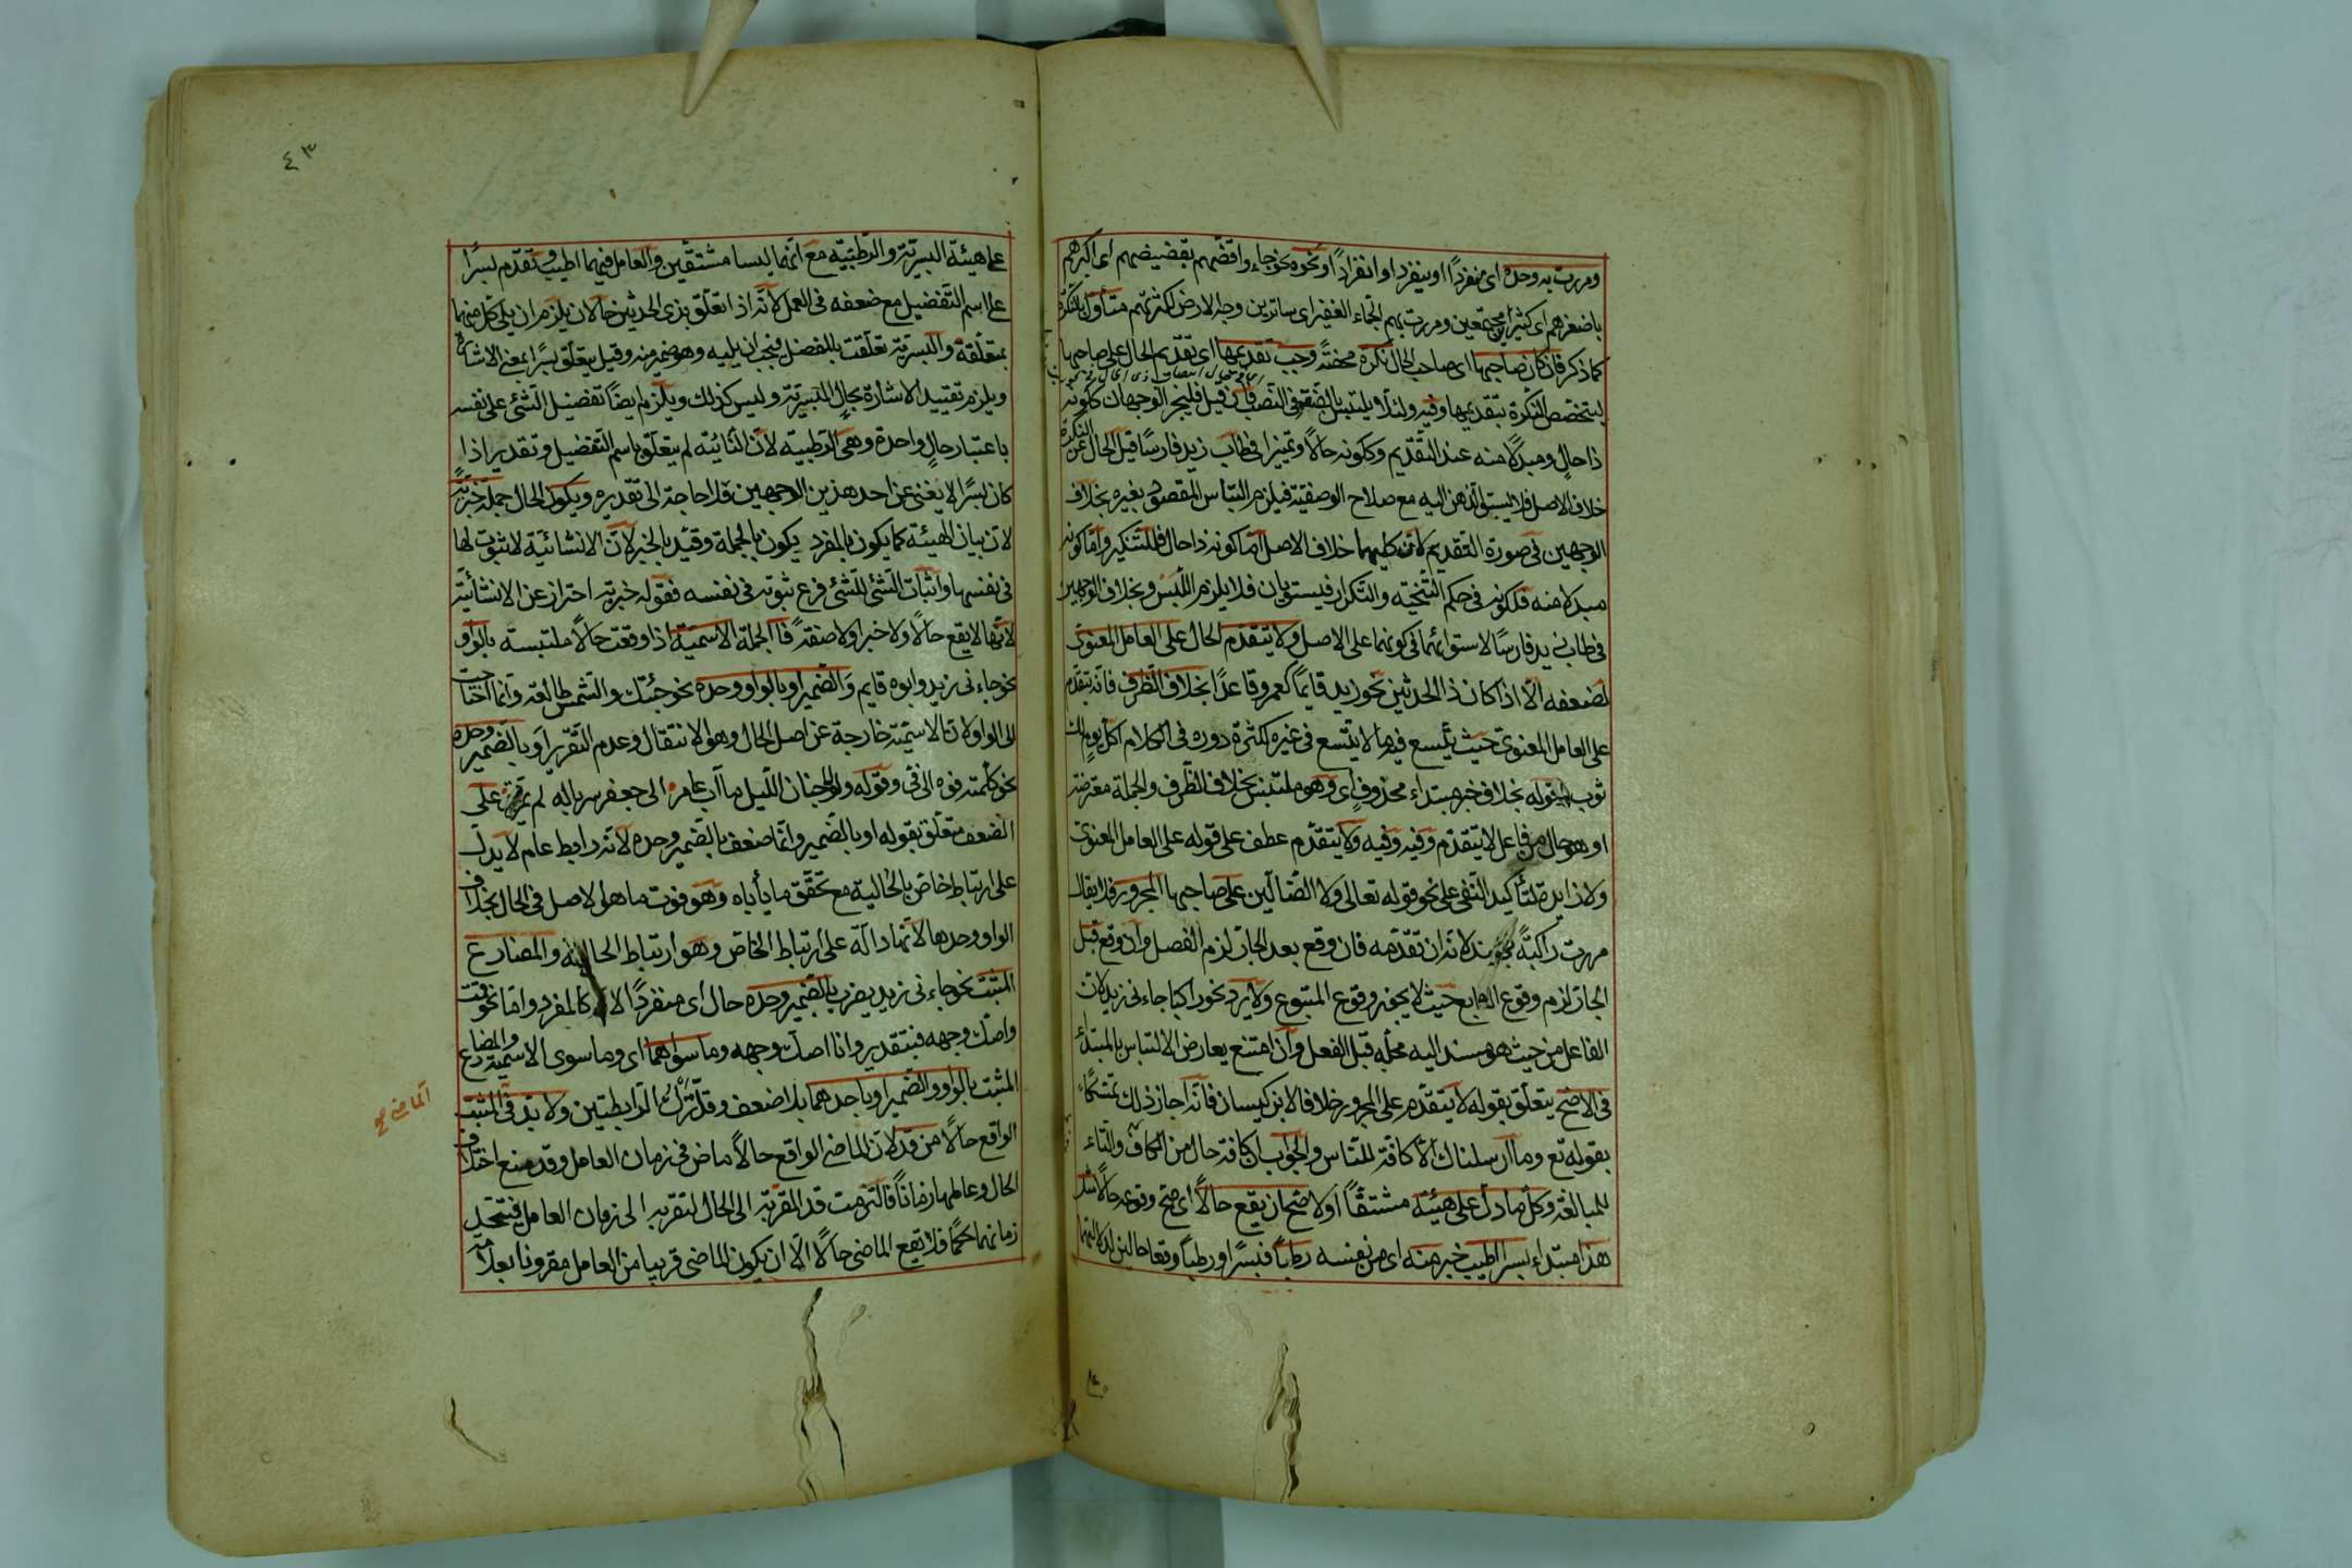 ومررت به وحده اى منفردًا او ينفرد او انفرادًا او نحوه نحو جاءوا قضّهم بقضيضهم اى اكبرهم
باصغرهم اى كثيرين مجتمعين ومررت بهم الجماء الغفير اى ساترين وجه الارض لكثرتهم متأول بالنكرة
كما ذكر فان كان صاحبها اى صاحب الحال نكرة محضةً وجب تقديمها اى تقديم الحال على صاحبها
ليتخصص النكرة بتقديمها وفيه ولئلا يلتبس بالصفة فى النصب فان قيل فليجز الوجهان ككونه
ذا حال ومبدلًا منه عند التقديم وككونه حالًا وتميزا فى طاب زيد فارسًا قيل الحال عن النكرة
خلاف الاصل فلا يستبق الذهن اليه مع صلاح الوصفية فيلزم التباس المقصود بغيره بخلاف
الوجهين فى صورة التقديم لان كليهما خلاف الاصل اما كونه ذا حال فللتنكير واما كونه
مبدلا منه فلكونه فى حكم التنحية والتكرار فيستويان فلا يلزم اللبس وبخلاف الوجهين
فى طاب زيد فارسًا لاستوائهما فى كونهما على الاصل ولا يتقدم الحال على العامل المعنوى
لضعفه الّا اذا كان ذا الحدثين نحو زيد قايمًا كعمرو قاعدًا بخلاف الظرف فانه يتقدم
على العامل المعنوى حيث يتسع فيه ما لا يتسع فى غيره لكثرة دوره فى الكلام اكل يوم لك
ثوب قوله بخلاف خبر مبتداء محذوف اى وهو ملتبس بخلاف الظرف والجملة معترضة
او هو حال من فاعل لا يتقدم وفيه وفيه ولا يتقدم عطف على قوله على العامل المعنوى
ولا زايدة لتأكيد النفى على نحو قوله تعالى ولا الضالين على صاحبها المجرور فلا يقال
مررت راكبةً بهند لانه ان تقدمه فان وقع بعد الجار لزم الفصل وان وقع قبل
الجار لزم وقوع التابع حيث لا يجوز وقوع المتبوع ولا يرد نحو راكبا جاءنى زيد لان
الفاعل من حيث هو مسند اليه محله قبل الفعل وان امتنع يعارض الالتباس بالمبتدأ
فى الاصح يتعلق بقوله لا يتقدم على المجرور خلافا لابن كيسان فانه اجاز ذلك تمسكًا
بقوله تع وما ارسلناك الّا كافة للناس والجواب ان كافة حال من الكاف والتاء
للمبالغة وكل ما دل على هيئة مشتقًا اولا صح ان يقع حالًا اى صح وقوعه حالًا مثل
هذا مبتداء بسرا اطيب خبر منه اى من نفسه رطبًا فبسرًا ورطبًا وقعا حالين لدلالتهما
٤٣
على هيئة البسرية والرطبية مع انهما ليسا مشتقين والعامل فيهما اطيب وتقدم بسرًا
على اسم التفضيل مع ضعفه فى العمل لانه اذا تعلق بذى الحدثين حالان يلزم ان يلى كل منهما
بمتعلقه والبسرية تعلقت بالمفضل فيجب ان يليه وهو ضمير منه وقيل يتعلق بسرًا بمعنى الاشارة
ويلزم تقييد الاشارة بحال البسرية وليس كذلك ويلزم ايضًا تفضيل الشئ على نفسه
باعتبار حالٍ واحدة وهى الرطبية لان الثانية لم يتعلق باسم التفضيل وتقدير اذا
كان بسرًا لا يغنى عن احد هذين الوجهين فلا حاجة الى تقديره ويكون الحال جملة خبرية
لان بيان الهيئة كما يكون بالمفرد يكون بالجملة وقيد بالخبرية لان الانشائية لا ثبوت لها
فى نفسها واثبات الشئ للشئ فرع ثبوته فى نفسه فقوله خبرية احتراز عن الانشائية
لانها لا يقع حالًا ولا خبرا ولا صفة فالجملة الاسمية اذا وقعت حالًا ملتبسة بالواو
نحو جاءنى زيد وابوه قايم والضمير او بالواو وحده نحو جئتك والشمس طالعة وانما احتاجت
الى الواو لان الاسمية خارجة عن اصل الحال وهو الانتقال وعدم التقرير او بالضمير وحده
نحو كلمته فوه الى فى وقوله ولولا جنان الليل ما آب عامر الى جعفر سرباله لم يمزق على
الضعف متعلق بقوله او بالضمير وانما ضعف بالضمير وحده لانه رابط عام لا يدل
على ارتباط خاص بالحالية مع تحقق ما يأباه وهو فوت ما هو الاصل فى الحال بخلاف
الواو وحدها لانها دالة على ارتباط الخاص وهو ارتباط الحالية والمضارع
المثبت نحو جاءنى زيد يضرب بالضمير وحده حال اى منفردًا كالمفرد واما نحو قمت
واصك وجهه فبتقدير وانا اصك وجهه وما سواهما اى وما سوى الاسمية والمضارع
المثبت بالواو والضمير او باحدهما بلا ضعف وقل ترك الرابطتين ولا بد فى المثبت
الماضى صح
الواقع حالًا من قد لان الماضى الواقع حالًا ماض فى زمان العامل وقد منع اختلاف
الحال وعاملها زمانًا فالتزمت قد المقربة الى الحال لتقربه الى زمان العامل فيتحد
زمانهما حكمًا فلا يقع الماضى حالًا الّا ان يكون الماضى قريبا من العامل مقرونا بعلامة